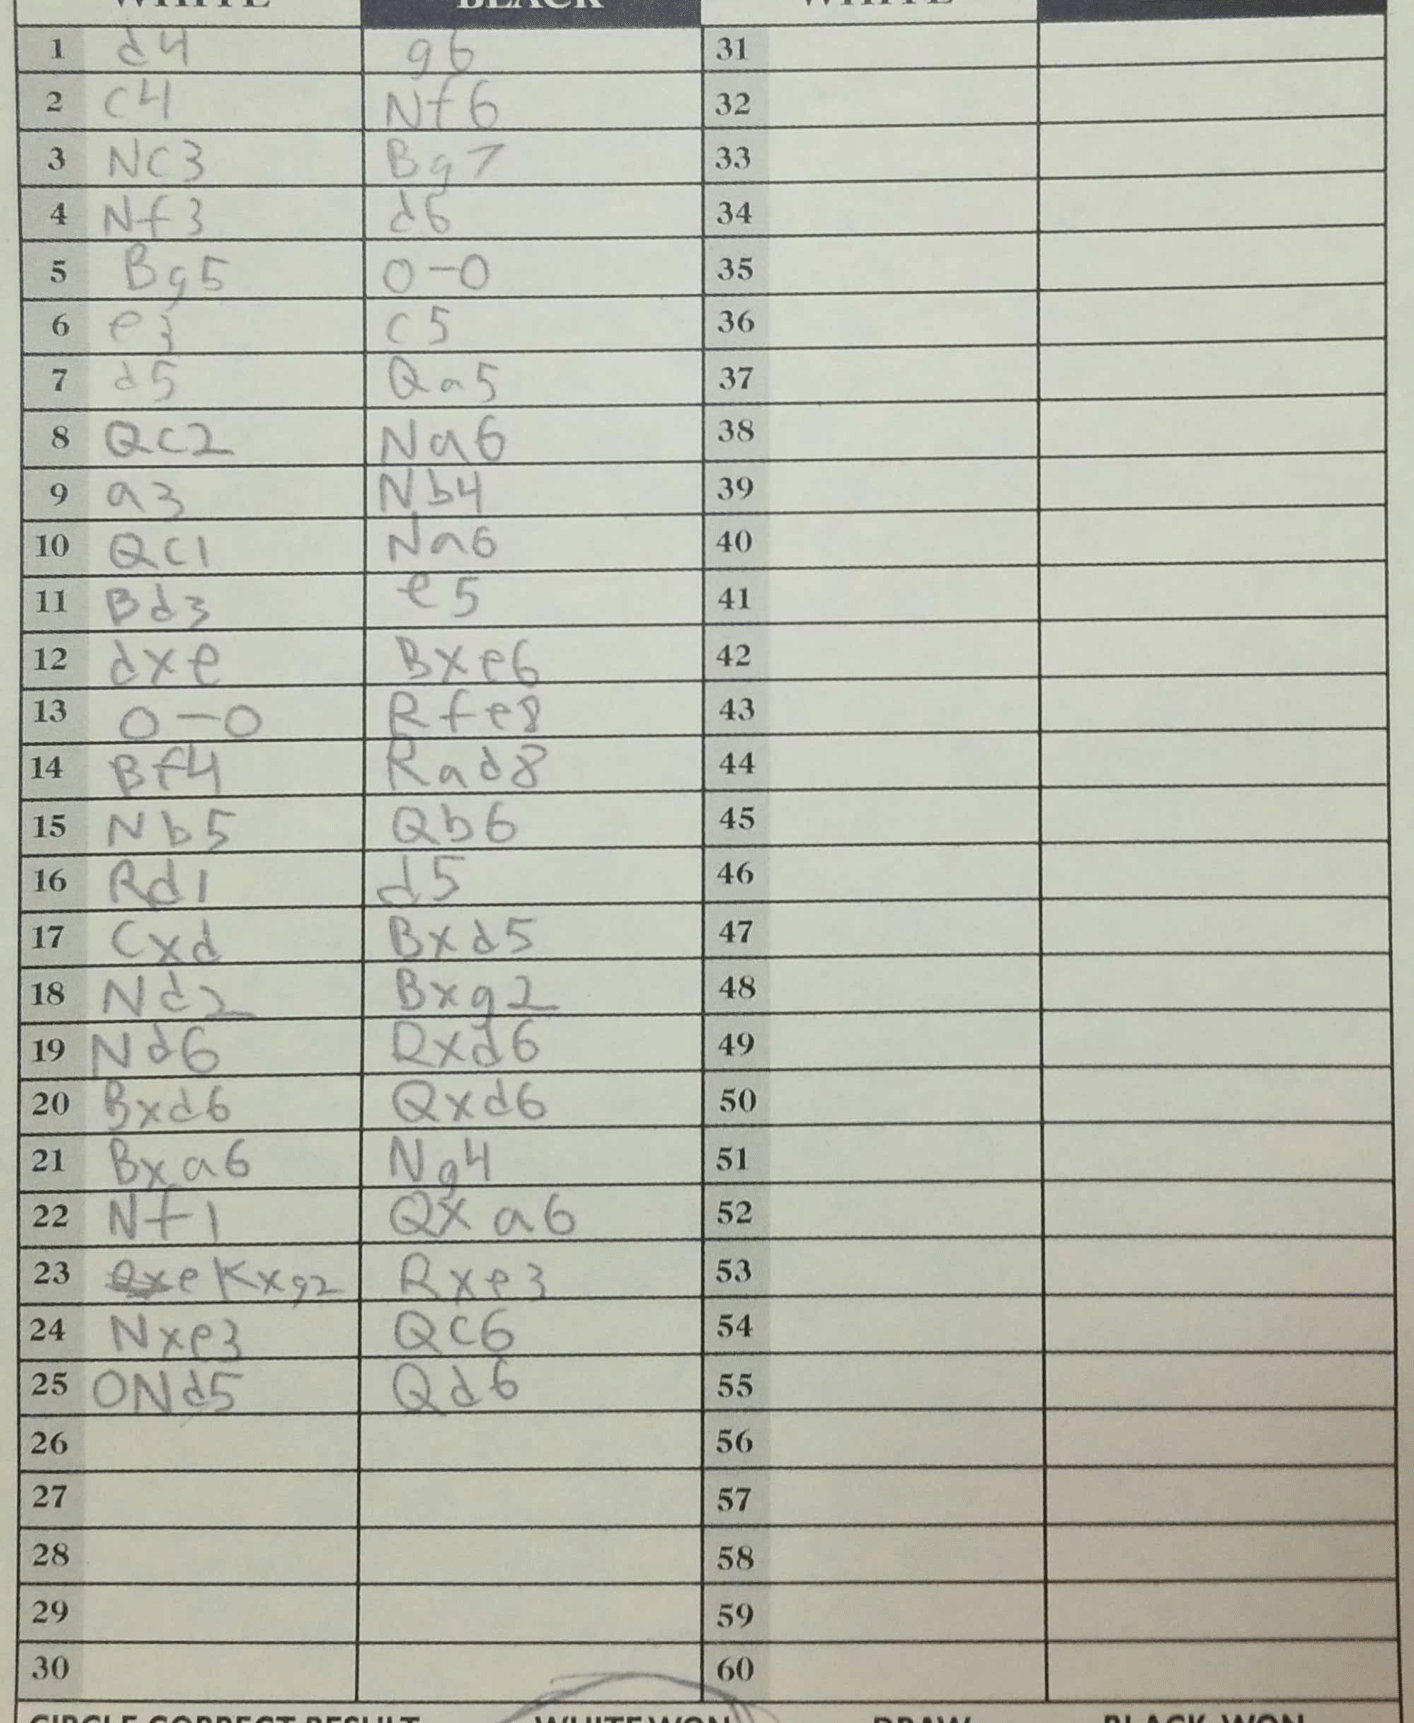 WHITE BLACK WHITE
1 d4 g6 31
2 c4 Nf6 32
3 Nc3 Bg7 33
4 Nf3 d6 34
5 Bg5 0-0 35
6 e3 c5 36
7 d5 Qa5 37
8 Qc2 Na6 38
9 a3 Nb4 39
10 Qc1 Na6 40
11 Bd3 e5 41
12 dxe Bxe6 42
13 0-0 Rfe8 43
14 Bf4 Rad8 44
15 Nb5 Qb6 45
16 Rd1 d5 46
17 Cxd Bxd5 47
18 Nd2 Bxg2 48
19 Nd6 Rxd6 49
20 Bxd6 Qxd6 50
21 Bxa6 Ng4 51
22 Nf1 Qxa6 52
23 Kxg2 Rxe3 53
24 Nxe3 Qc6 54
25 ONd5 Qd6 55
26 56
27 57
28 58
29 59
30 60
CIRCLE CORRECT RESULT WHITE WON DRAW BLACK WON